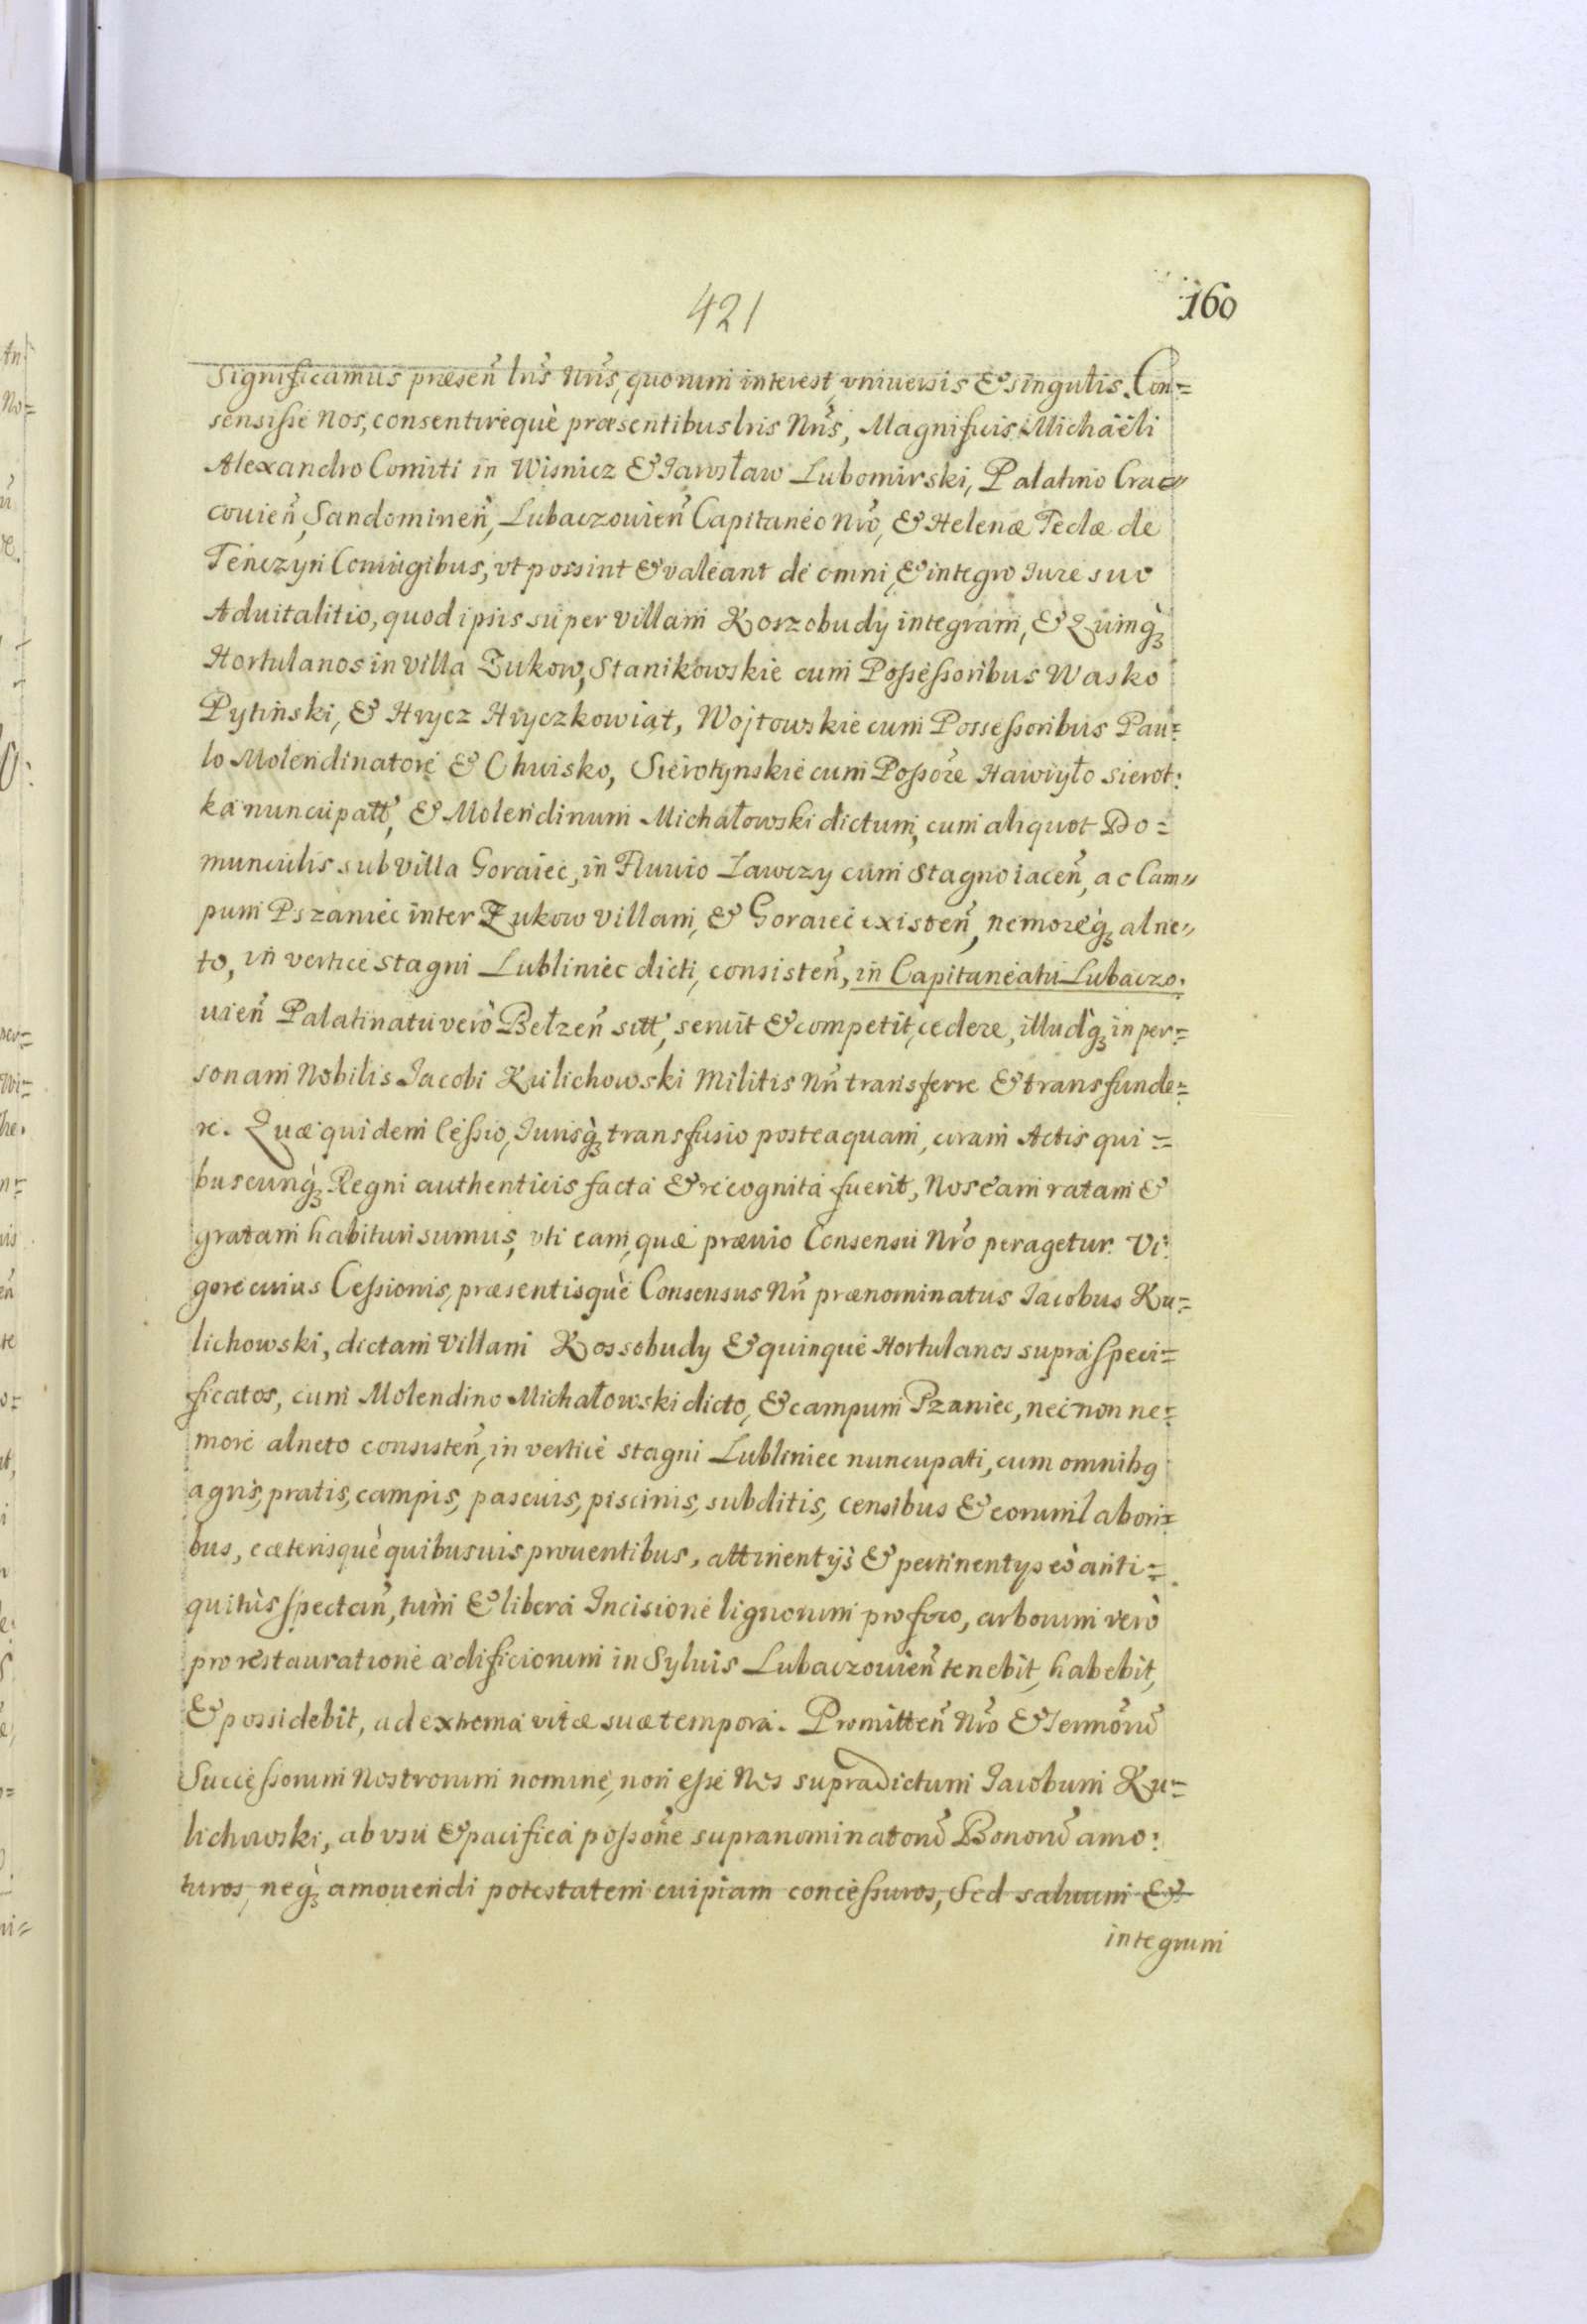 421
160
Significamus præsen̄ lr̄is Nr̄is, quorum interest, vniuersis & singulis. Con=
sensisse Nos, consentirequè præsentibus lris Nr̄is, Magnificis Michäeli
Alexandro Comiti in Wisnicz & Iarosław Lubomirski, Palatino Crac=
couien̄, Sandomirien̄, Lubaczouien̄ Capitaneo Nr̄o, & Helenæ Teclæ de
Tenczyn Coniugibus, vt possint & valeant de omni, & integro Iure suo
Aduitalitio, quod ipsis super villam Koszobudy integram, & Quinq̀ꝫ
Hortulanos in villa Żukow, Stanikowskie cum Possessoribus Wasko
Pytiński, & Hrycz Hryczkowiąt, Wojtowskie cum Possessoribus Pau=
lo Molendinatore & Chwisko, Sierotynskie cum Possōre Hawryło Sierot:
ka nuncupatt̄, & Molendinum Michałowski dictum, cum aliquot Do=
munculis sub villa Goraiec, in Fluuio Lawczy cum Stagno iacen̄, ac Cam=
pum Pszaniec inter Żukow villam, & Goraiec existen̄, nemoreq̀ꝫ alne=
to, in vertice stagni Lubliniec dicti, consisten̄, in Capitaneatu Lubaczo:
uien̄ Palatinatu verò Bełzen̄ sitt̄, seruit & competit, cedere, illudq̀ꝫ in per=
sonam Nobilis Iacobi Kulichowski Militis Nr̄i transferre & transfunde=
re. Quæ quidem Cessio, Iurisq̀ꝫ transfusio posteaquam, coram Actis qui=
buscunq̀ꝫ Regni authenticis facta & recognita fuerit, Nos eam ratam &
gratam habituri sumus, vti eam, quæ præuio Consensu Nr̄o peragetur. Vi:
gore cuius Cessionis, præsentisquè Consensus Nr̄i prænominatus Iacobus Ku=
lichowski, dictam Villam Kossobudy & quinque Hortulanos supra speci=
ficatos, cum Molendino Michałowski dicto, & campum Pzaniec, nec non ne=
more alneto consisten̄, in vertice stagni Lubliniec nuncupati, cum omnibꝯ
agris, pratis, campis, pascuis, piscinis, subditis, censibus & eorum labori=
bus, cæterisquè quibusuis prouentibus, attinentijs & pertinentijs eò anti=
quitùs spectan̄, tum & libera Incisione lignorum pro foco, arborum verò
pro restauratione ædificiorum in Syluis Lubaczouien̄ tenebit, habebit,
& possidebit, ad extrema vitæ suæ tempora. Promitten̄ Nr̄o & Sermōrū
Successorum Nostrorum nomine, non esse Nos supradictum Iacobum Ku=
lichowski, ab vsu & pacifica possōne supranominatorū Bonorū amo:
turos, neq̀ꝫ amouendi potestatem cuipiam concessuros, Sed saluum &
integrum